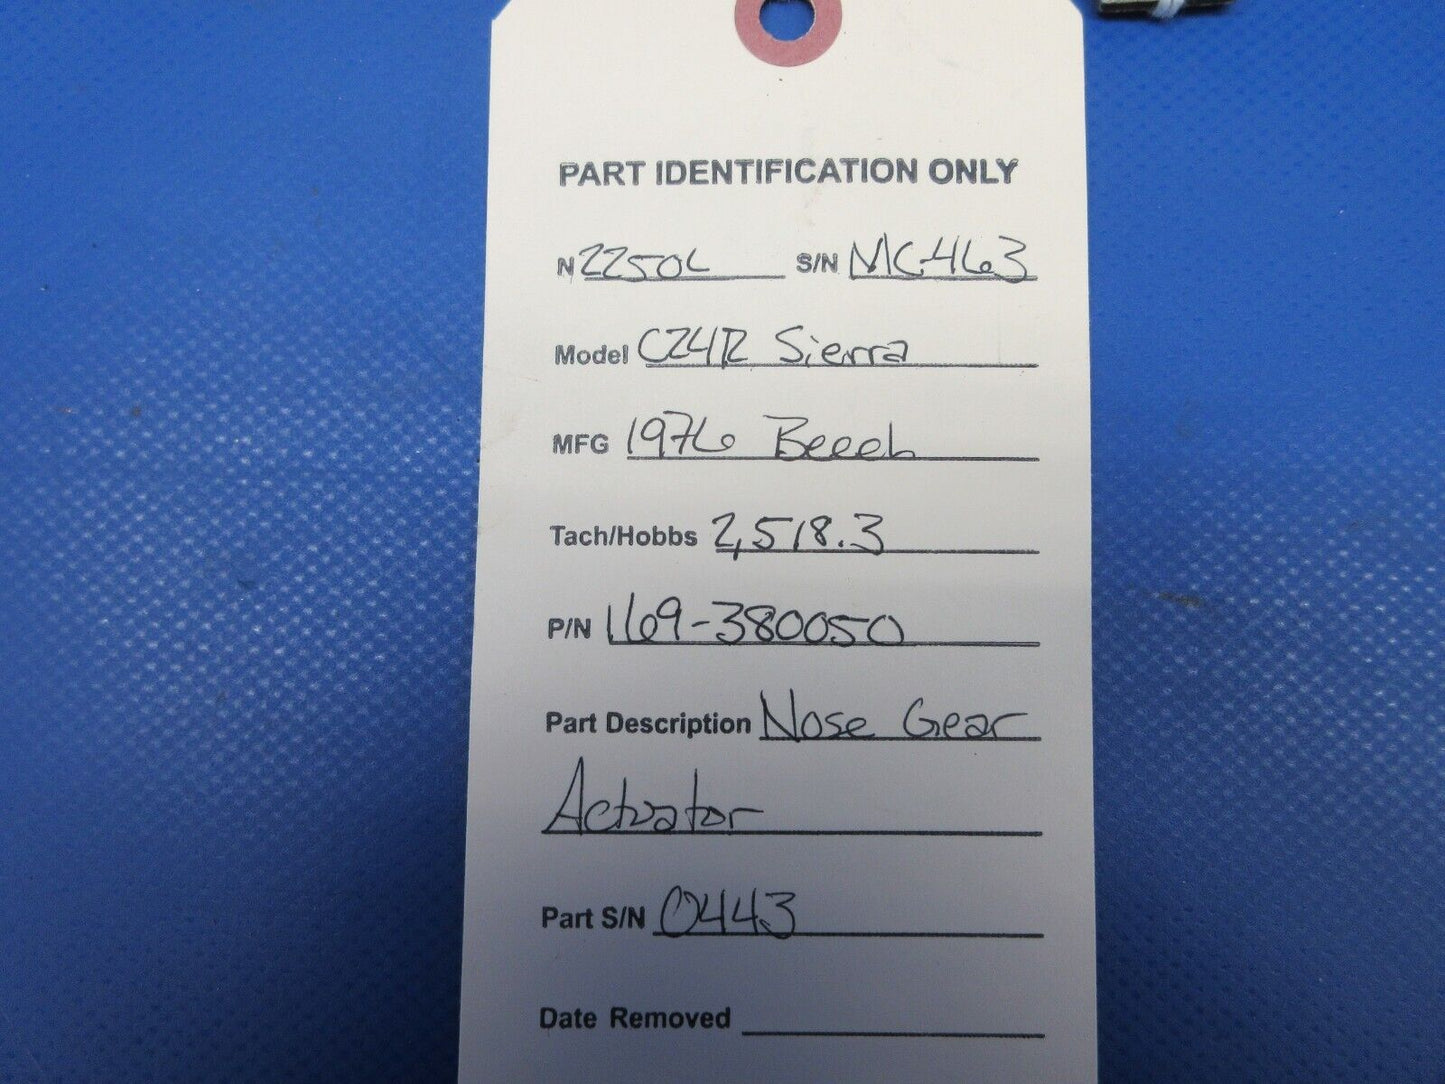 PART IDENTIFICATION ONLY
N 2250L S/N MC-463
Model C24R Sierra
MFG 1976 Beech
Tach/Hobbs 2,518.3
P/N 169-380050
Part Description Nose Gear
Actuator
Part S/N 0443
Date Removed